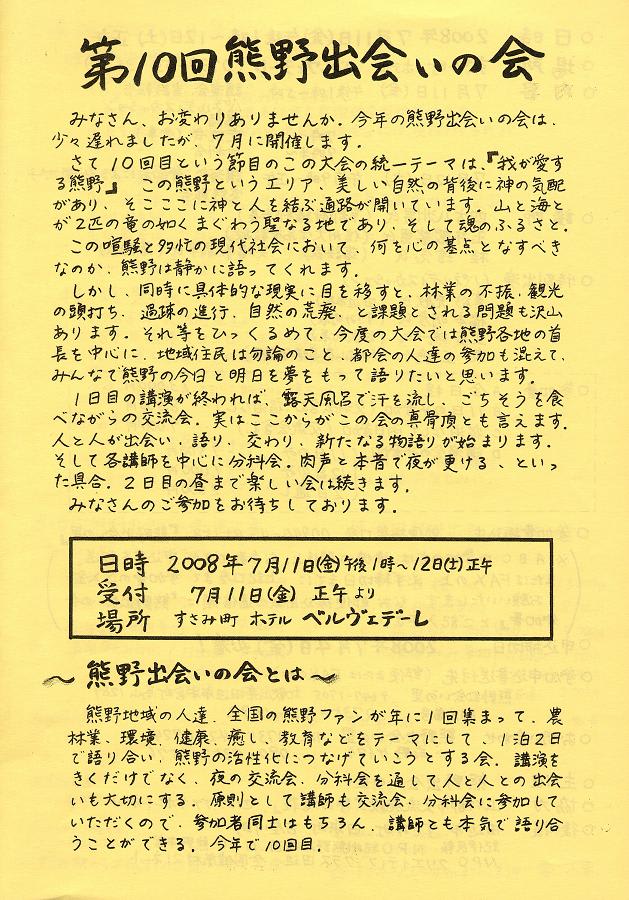 第10回熊野出会いの会
みなさん、お変わりありませんか。今年の熊野出会いの会は、
少々遅れましたが、7月に開催します。
さて10回目という節目のこの大会の統一テーマは、『我が愛す
る熊野』 この熊野というエリア、美しい自然の背後に神の気配
があり、そこここに神と人を結ぶ通路が開いています。山と海と
が2匹の竜の如くまぐわう聖なる地であり、そして魂のふるさと。
この喧騒と多忙の現代社会において、何を心の基点となすべき
なのか、熊野は静かに語ってくれます。
しかし、同時に具体的な現実に目を移すと、林業の不振、観光
の頭打ち、過疎の進行、自然の荒廃、と課題とされる問題も沢山
あります。それ等をひっくるめて、今度の大会では熊野各地の首
長を中心に、地域住民は勿論のこと、都会の人達の参加も混えて、
みんなで熊野の今日と明日を夢をもって語りたいと思います。
1日目の講演が終われば、露天風呂で汗を流し、ごちそうを食
べながらの交流会。実はここからがこの会の真骨頂とも言えます。
人と人が出会い、語り、交わり、新たなる物語りが始まります。
そして各講師を中心に分科会。肉声と本音で夜が更ける、といっ
た具合。2日目の昼まで楽しい会は続きます。
みなさんのご参加をお待ちしております。
日時 2008年7月11日(金)午後1時〜12日(土)正午
受付 7月11日(金) 正午より
場所 すさみ町 ホテル ベルヴェデーレ
〜熊野出会いの会とは〜
熊野地域の人達、全国の熊野ファンが年に1回集まって、農
林業、環境、健康、癒し、教育などをテーマにして、1泊2日
で語り合い、熊野の活性化につなげていこうとする会。講演を
きくだけでなく、夜の交流会、分科会を通して人と人との出会
いも大切にする。原則として講師も交流会、分科会に参加して
いただくので、参加者同士はもちろん、講師とも本気で語り合
うことができる。今年で10回目。